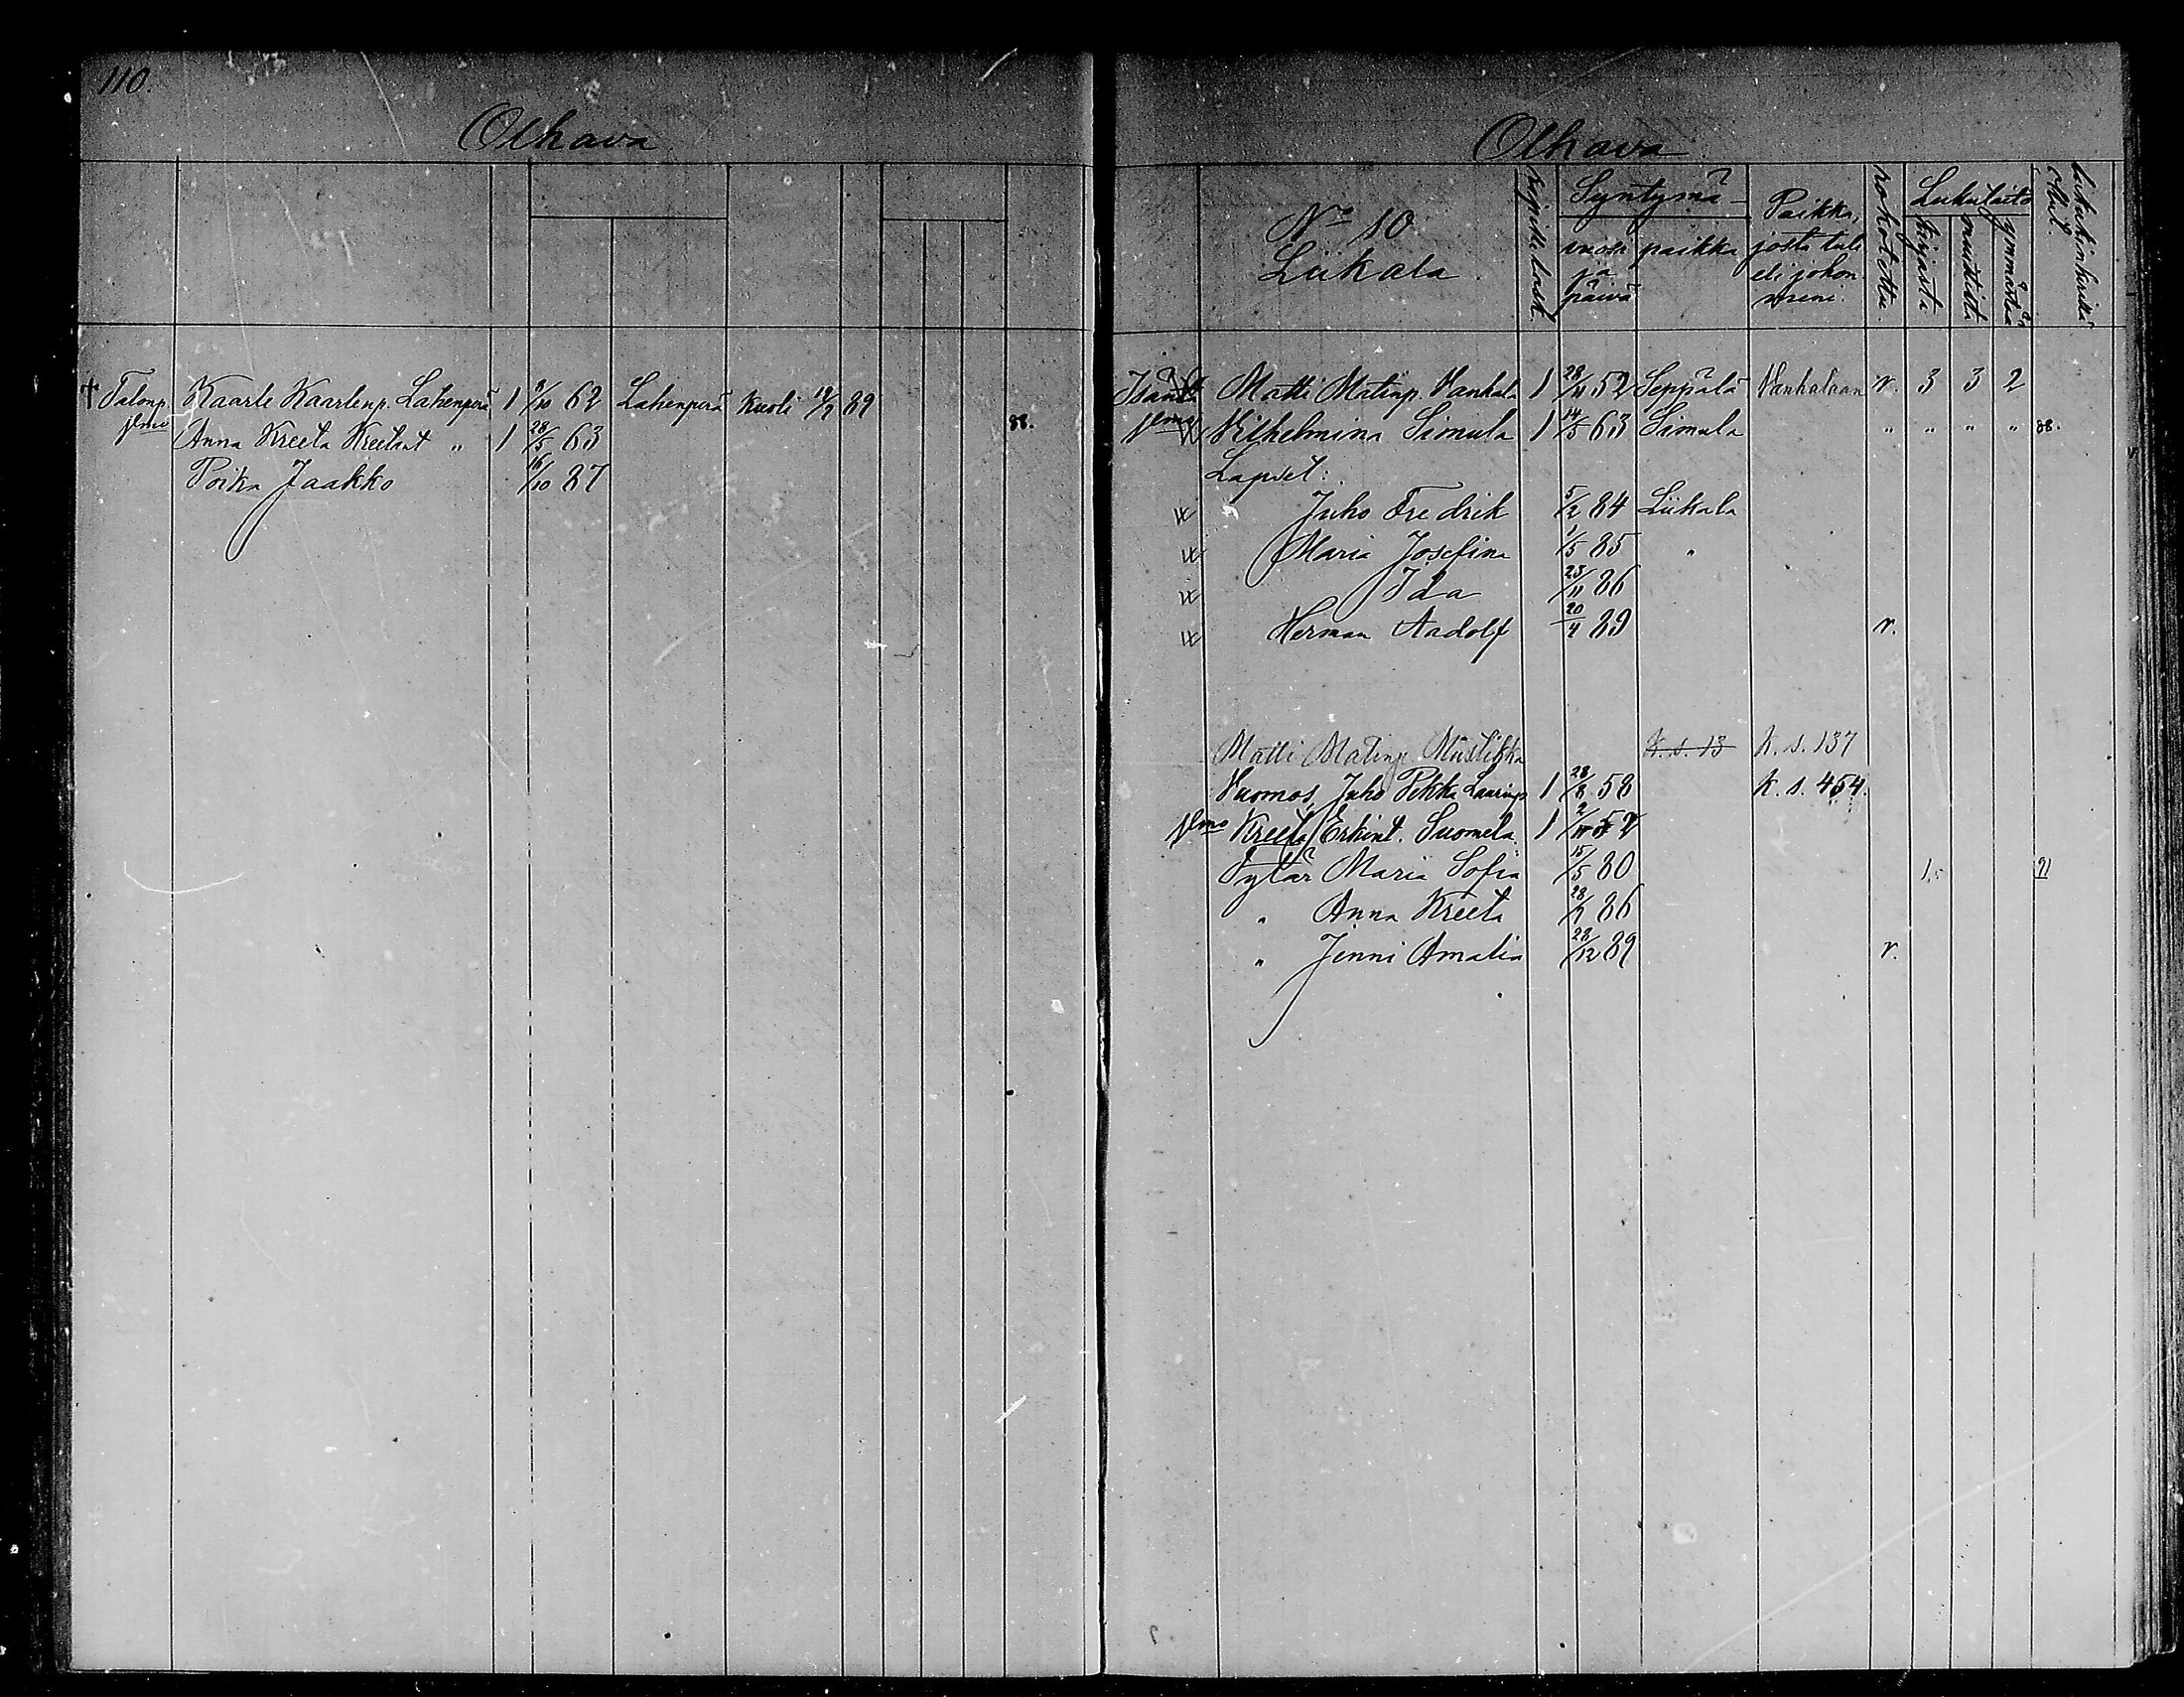 110.
Olhava
† Talonp. Kaarle Kaarlenp. Lahenperä 1 8/10 62 Lahenperä kuoli 89
Vmo Anna Kreeta Kreetant " 1 28/5 63 88.
Poika Jaakko 16/10 87
Olhava
No 10
Liikala
Syntymä-
vuosi ja päivä
paikka
Paikka, josta tuli eli johon meni.
rokotettu.
Lukutaito
kirjasta
ymmärtää
Isäntä Matti Matinp. Vankala 1 28/11 52 Seppälä Vanhalaan v. 3 3 2
Vmo Vilhelmina Simula 1 14/5 63 Simula " " " " 88.
Lapset:
Juho Fredrik 5/2 84 Liikala
Maria Josefina 1/5 85 "
Ida 25/11 86
Herman Aadolf 20/4 89 v.
Matti Matinp. Mustikka K.s. 13 K.s. 137
Vuomos, Juho Pekka Laurinp 1 28/8 58 K.s. 454.
Vmo Kreeta Erkint. Suomela. 1
Tytär Maria Sofia 15/5 80 1,5 91
" Anna Kreeta 86
" Jenni Amalia 28/12 89 v.